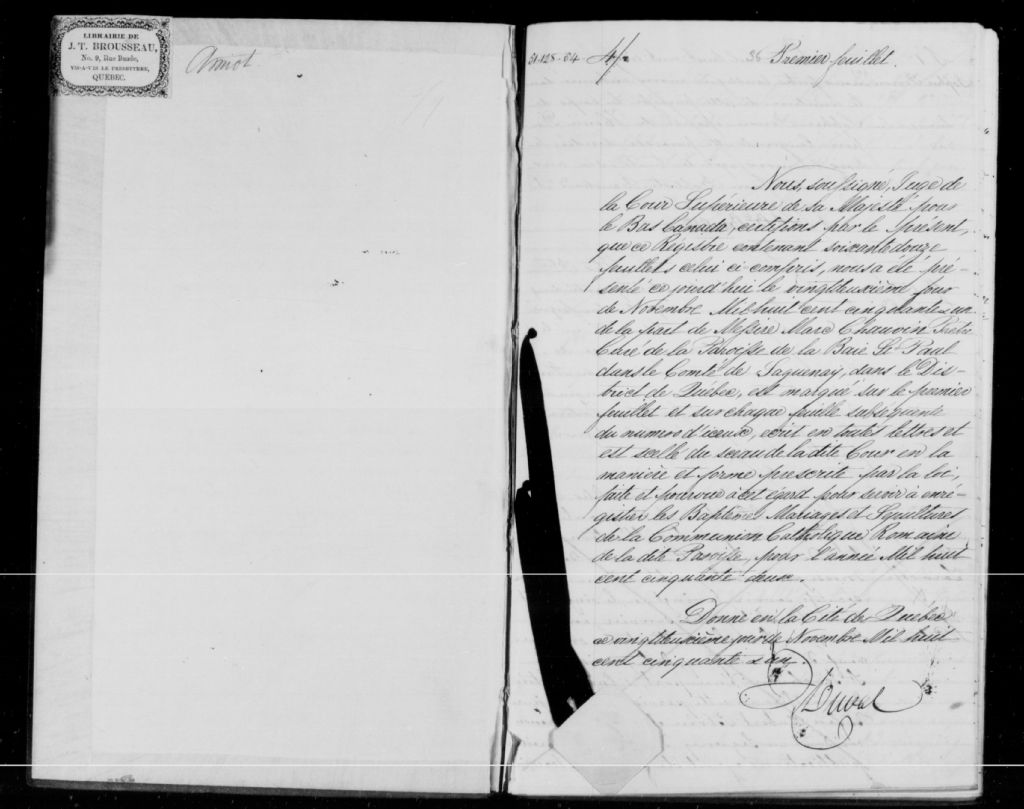 LIBRAIRIE DE
J. T. BROUSSEAU,
No. 9, Rue Buade,
VIS-A-VIS LE PRESBYTERE,
QUÉBEC.
Amiot
31-128-64 4/. 36 Premier feuillet.
Nous, soussigné, Juge de
la Cour Supérieure de sa Majesté pour
le Bas Canada, certifions par le présent,
que ce Registre contenant soixante douze
feuillets celui ci compris, nous a été pré-
senté ce jourd'hui le vingtdeuxième jour
de Novembre Mil huit cent cinquante & un
de la part de Messire Marc Chauvin Prêtre
Curé de la Paroisse de la Baie St Paul
dans le Comté de Saguenay, dans le Dis-
trict de Québec, est marqué sur le premier
feuillet et sur chaque feuille subséquente
du numero d'iceux, écrit en toutes lettres et
est scellé du sceau de la dite Cour en la
manière et forme prescrite par la loi,
faite et pourvue à cet égard pour servir à enré-
gistrer les Baptêmes Mariages et Sépultures
de la Communion Catholique Romaine
de la dite Paroisse, pour l'année Mil huit
cent cinquante deux.
Donné en la Cité de Québec
ce vingtdeuxième jour de Novembre Mil huit
cent cinquante & un.
Duval